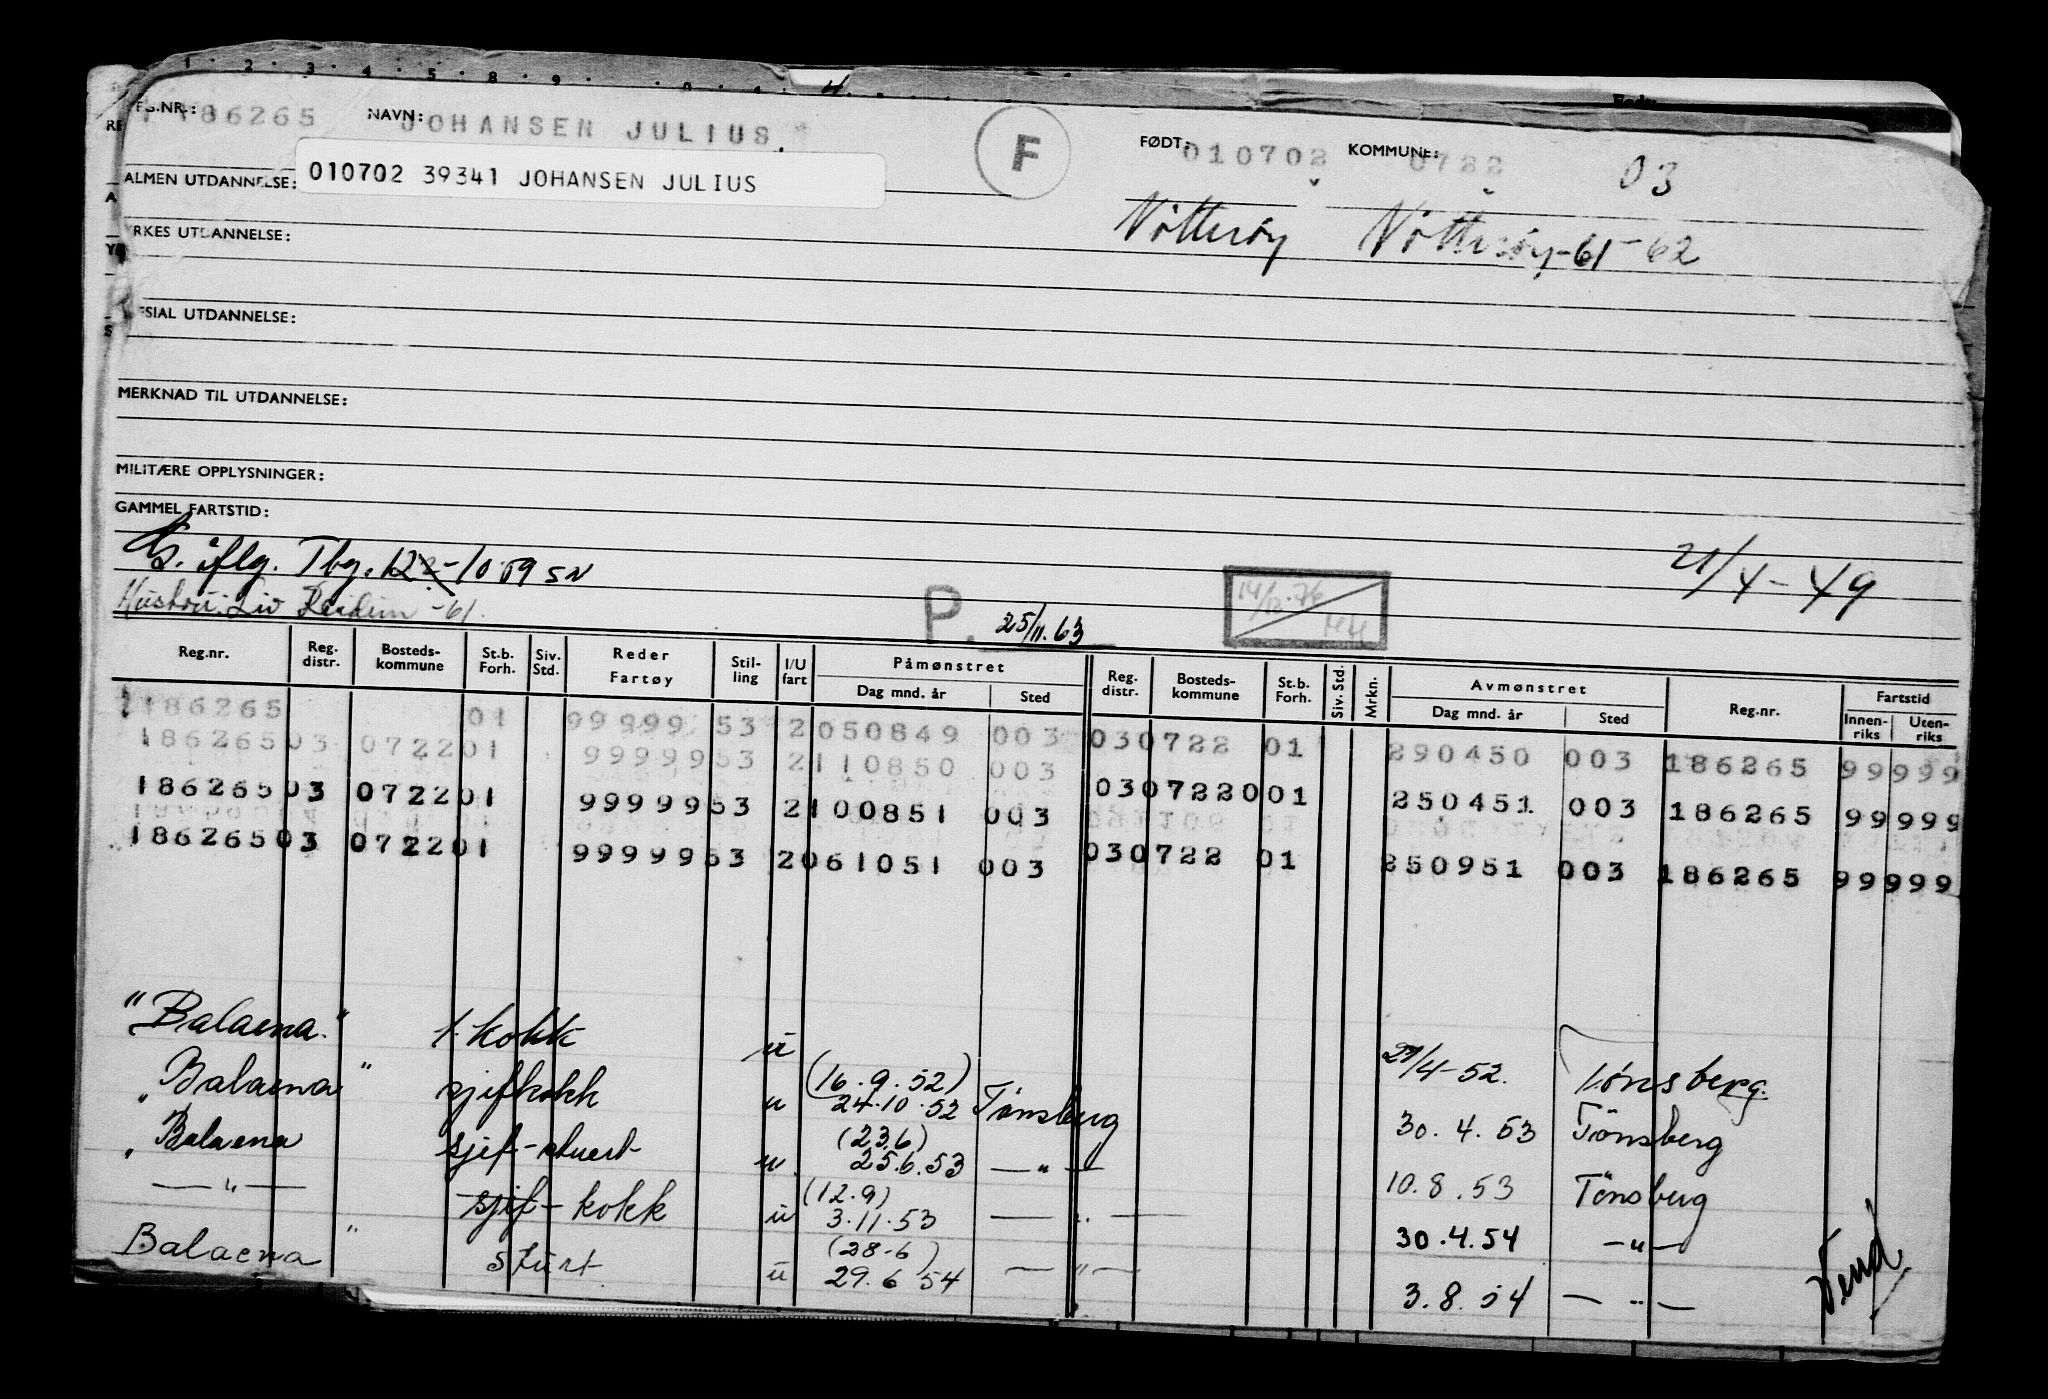 FG.NR.: 186265 NAVN: JOHANSEN JULIUS. F FØDT: 010702 KOMMUNE: 0722 03
ALMEN UTDANNELSE: 010702 39341 JOHANSEN JULIUS
Nötteröy Nötteröy-61-62
RKES UTDANNELSE:
ESIAL UTDANNELSE:
MERKNAD TIL UTDANNELSE:
MILITÆRE OPPLYSNINGER:
GAMMEL FARTSTID:
iflg. Tbg. 122-1059 SN 21/4-49
Hustru: Liv Reidun -61. P. 25/11.63
Reg.nr. Reg. distr. Bosteds-kommune St.b. Forh. Siv. Std. Reder Fartøy Stil-ling I/U fart Påmønstret Dag mnd. år Sted Reg. distr. Bosteds-kommune St.b. Forh. Siv. Std. Mrkn. Avmønstret Dag mnd. år Sted Reg.nr. Fartstid Innen-riks Uten-riks
186265 01 99999 53 2 050849 003 030722 01 290450 003 186265 99999
186265 03 0722 01 99999 53 2 110850 003 0307220 01 250451 003 186265 99999
186265 03 0722 01 99999 53 2 100851 003 030722 01 250951 003 186265 99999
186265 03 0722 01 99999 53 2 061051 003
"Balaena" 1. kokk u 29/4-52. Tønsberg.
"Balaena" sjefkokk u (16.9.52) 24.10.52 Tønsberg 30.4.53 Tönsberg
"Balaena sjef-stuert u. (23.6) 25.6.53 — " — 10.8.53 Tönsberg
— " — sjef-kokk u (12.9) 3.11.53 — " — 30.4.54 — " —
Balaena " stuert u (28-6) 29.6 54 — " — 3.8.54 — " —
Vend